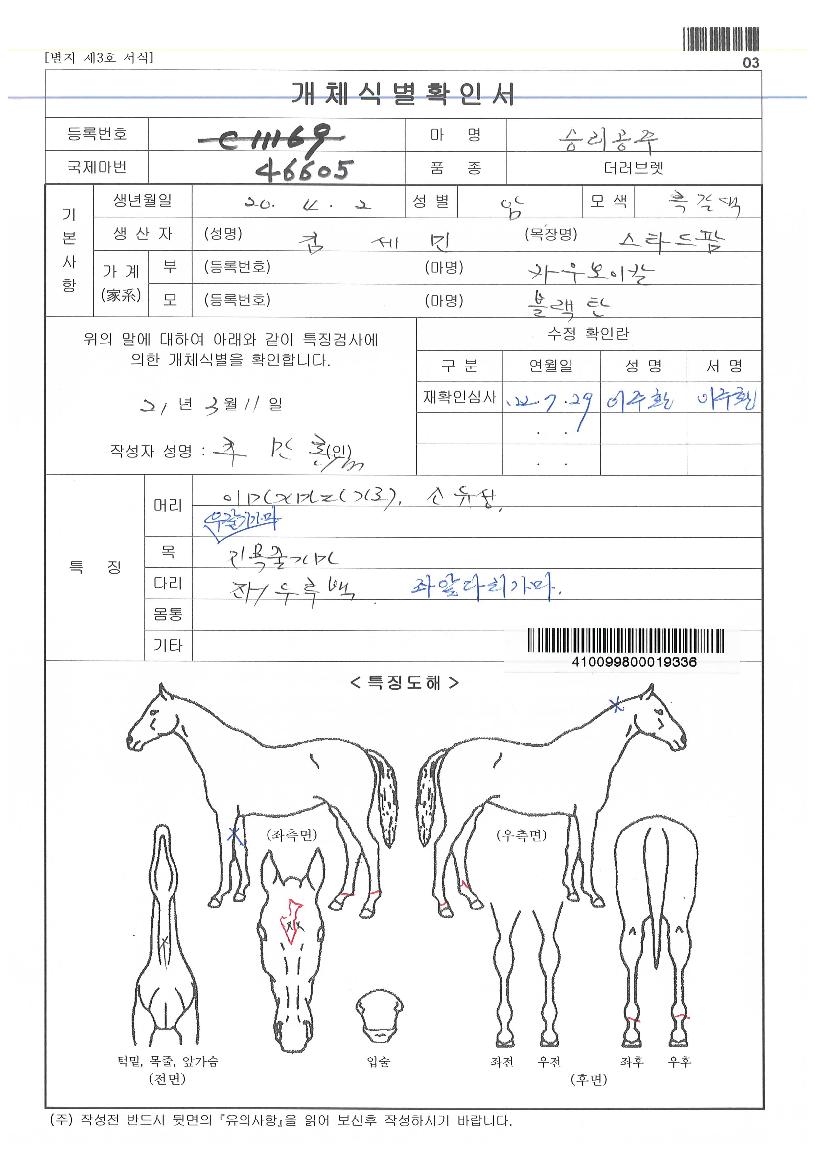 [별지 제3호 서식]
03
개체식별확인서
등록번호 C11169 마 명 승리공주
국제마번 46605 품 종 더러브렛
기본사항
생년월일 20. 4. 2 성별 암 모색 흑갈색
생산자 (성명) 김세민 (목장명) 스타드팜
가계(家系) 부 (등록번호) (마명) 카우보이칼
모 (등록번호) (마명) 블랙탄
위의 말에 대하여 아래와 같이 특징검사에
의한 개체식별을 확인합니다.
21년 3월 11일
작성자 성명 : (인)
수정 확인란
구분 연월일 성명 서명
재확인심사 22.7.29 이주환 이주환
. .
. .
특 징
머리
목
다리 좌앞다리가마.
몸통
기타
410099800019336
< 특징도해 >
(좌측면) (우측면)
턱밑, 목줄, 앞가슴
(전면)
입술
좌전 우전 좌후 우후
(후면)
(주) 작성전 반드시 뒷면의 『유의사항』을 읽어 보신후 작성하시기 바랍니다.